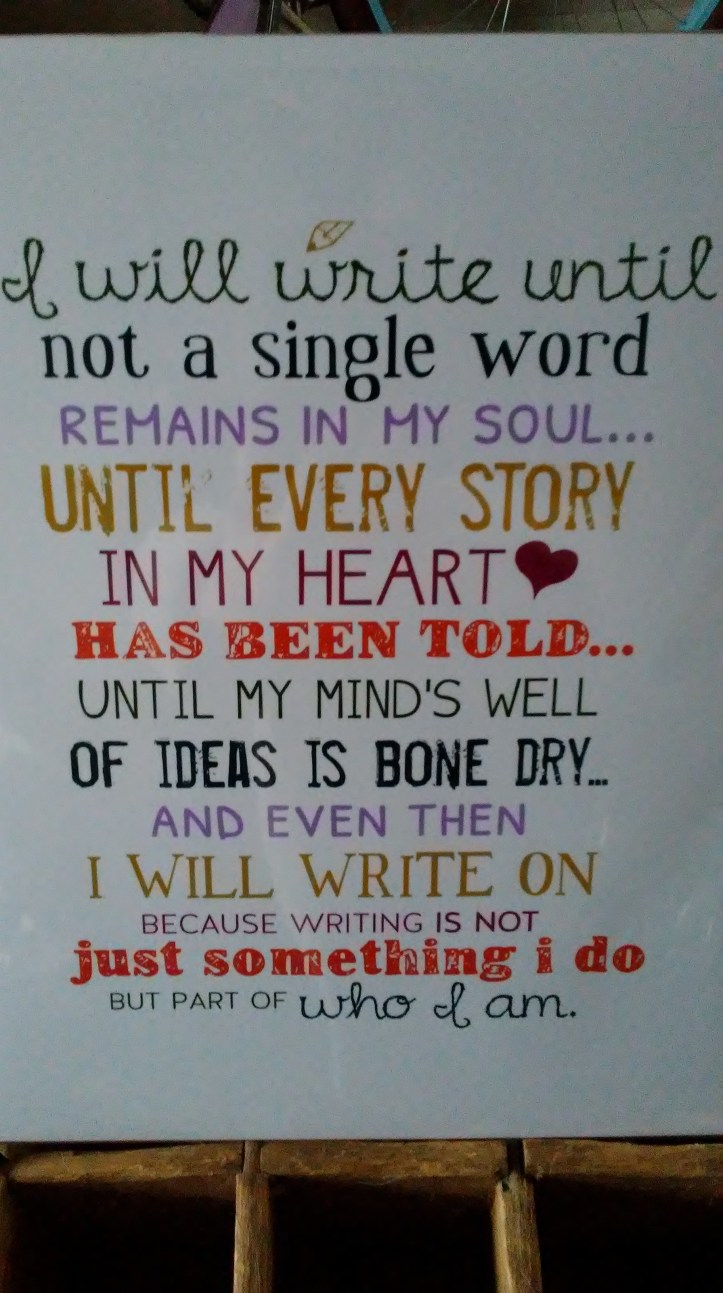 I will write until
not a single word
REMAINS IN MY SOUL...
UNTIL EVERY STORY
IN MY HEART
HAS BEEN TOLD...
UNTIL MY MIND'S WELL
OF IDEAS IS BONE DRY...
AND EVEN THEN
I WILL WRITE ON
BECAUSE WRITING IS NOT
just something i do
BUT PART OF who I am.